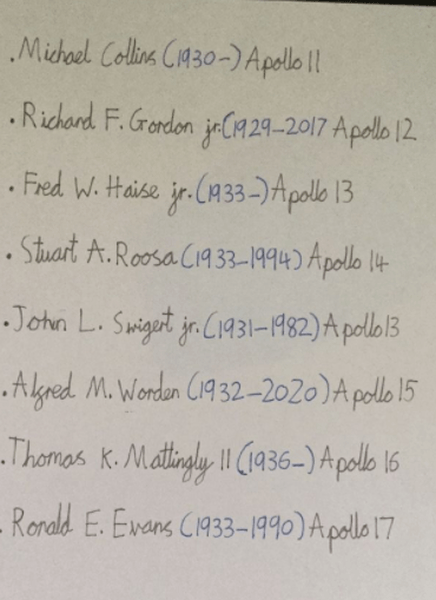 . Michael Collins (1930-) Apollo 11
. Richard F. Gordon jr.(1929-2017 Apollo 12
. Fred W. Haise jr. (1933-) Apollo 13
. Stuart A. Roosa (1933-1994) Apollo 14
. John L. Swigert jr. (1931-1982) Apollo 13
. Alfred M. Worden (1932-2020) Apollo 15
. Thomas K. Mattingly II (1936-) Apollo 16
. Ronald E. Evans (1933-1990) Apollo 17